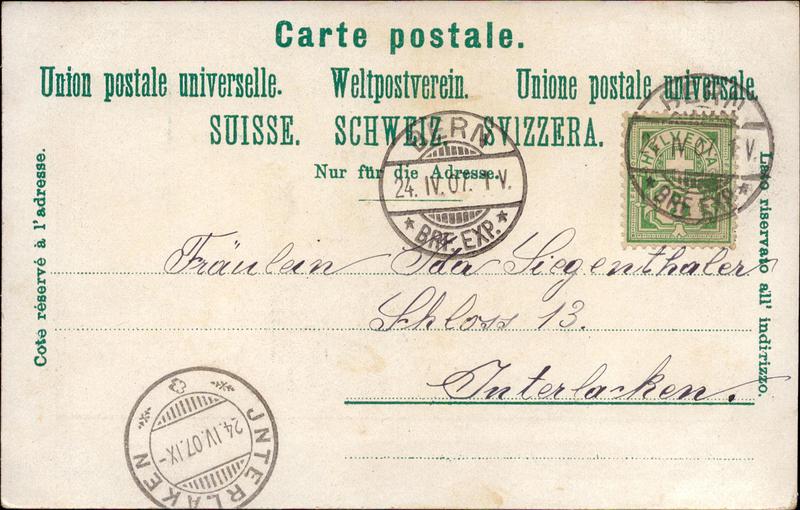 Carte postale.
Union postale universelle. Weltpostverein. Unione postale universale.
SUISSE. SCHWEIZ. SVIZZERA.
Nur für die Adresse.
Côté réservé à l'adresse.
Lato riservato all' indirizzo.
BERN
24. IV. 07. 1 V.
* BRF. EXP. *
BERN
IV. 07. V.
* BRF. EXP. *
HELVETIA
Fräulein Ida Siegenthaler
Schloss 13.
Interlacken.
JNTERLAKEN
24. IV. 07. IX-